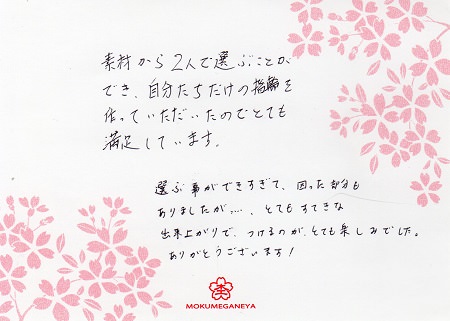 素材から2人で選ぶことが
でき、自分たちだけの指輪を
作っていただいたのでとても
満足しています。
選ぶ事ができすぎて、困った部分も
ありましたが…、とてもすてきな
出来上がりで、つけるのが、とても楽しみでした。
ありがとうございます!
MOKUMEGANEYA